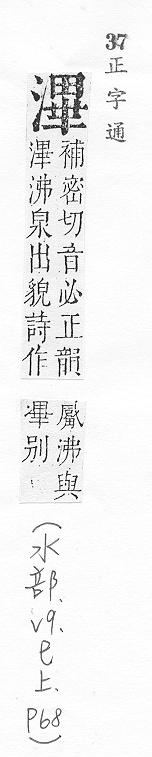 37 正字通
滭
補密切音必正韻
滭沸泉出貌詩作
觱沸與
㓖別
(水部.V9.巳上.P68)